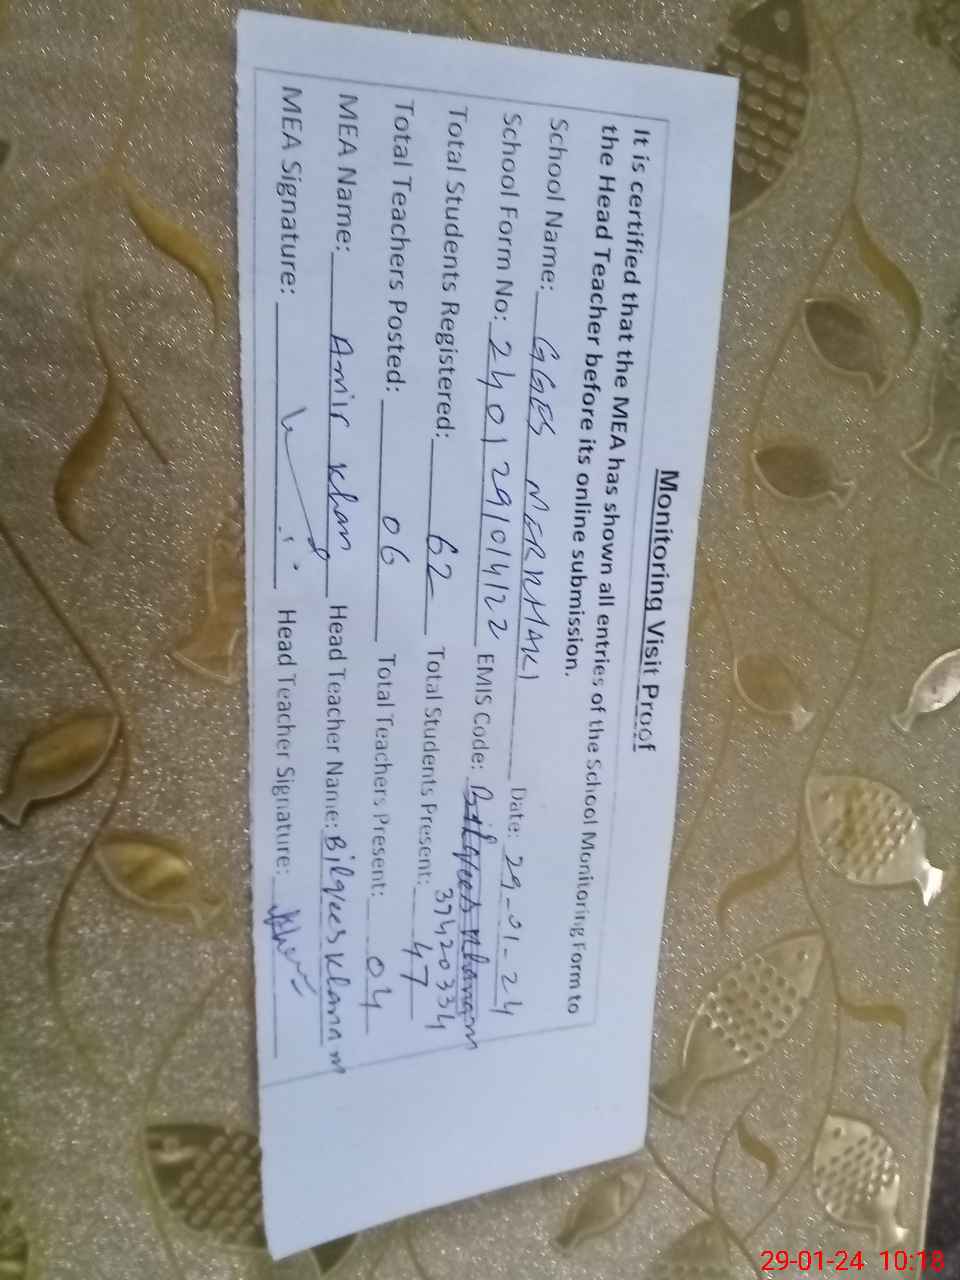 Monitoring Visit Proof
It is certified that the MEA has shown all entries of the School Monitoring Form to
the Head Teacher before its online submission.
School Name: GGES MERHAKI Date: 29-01-24
School Form No: 2401 29/01/4/22 EMIS Code: Bilqees Khanam
37420334
Total Students Registered: 62 Total Students Present: 47
Total Teachers Posted: 06 Total Teachers Present: 04
MEA Name: Amir Khan Head Teacher Name: Bilqees Khanam
MEA Signature: Head Teacher Signature:
29-01-24 10:18